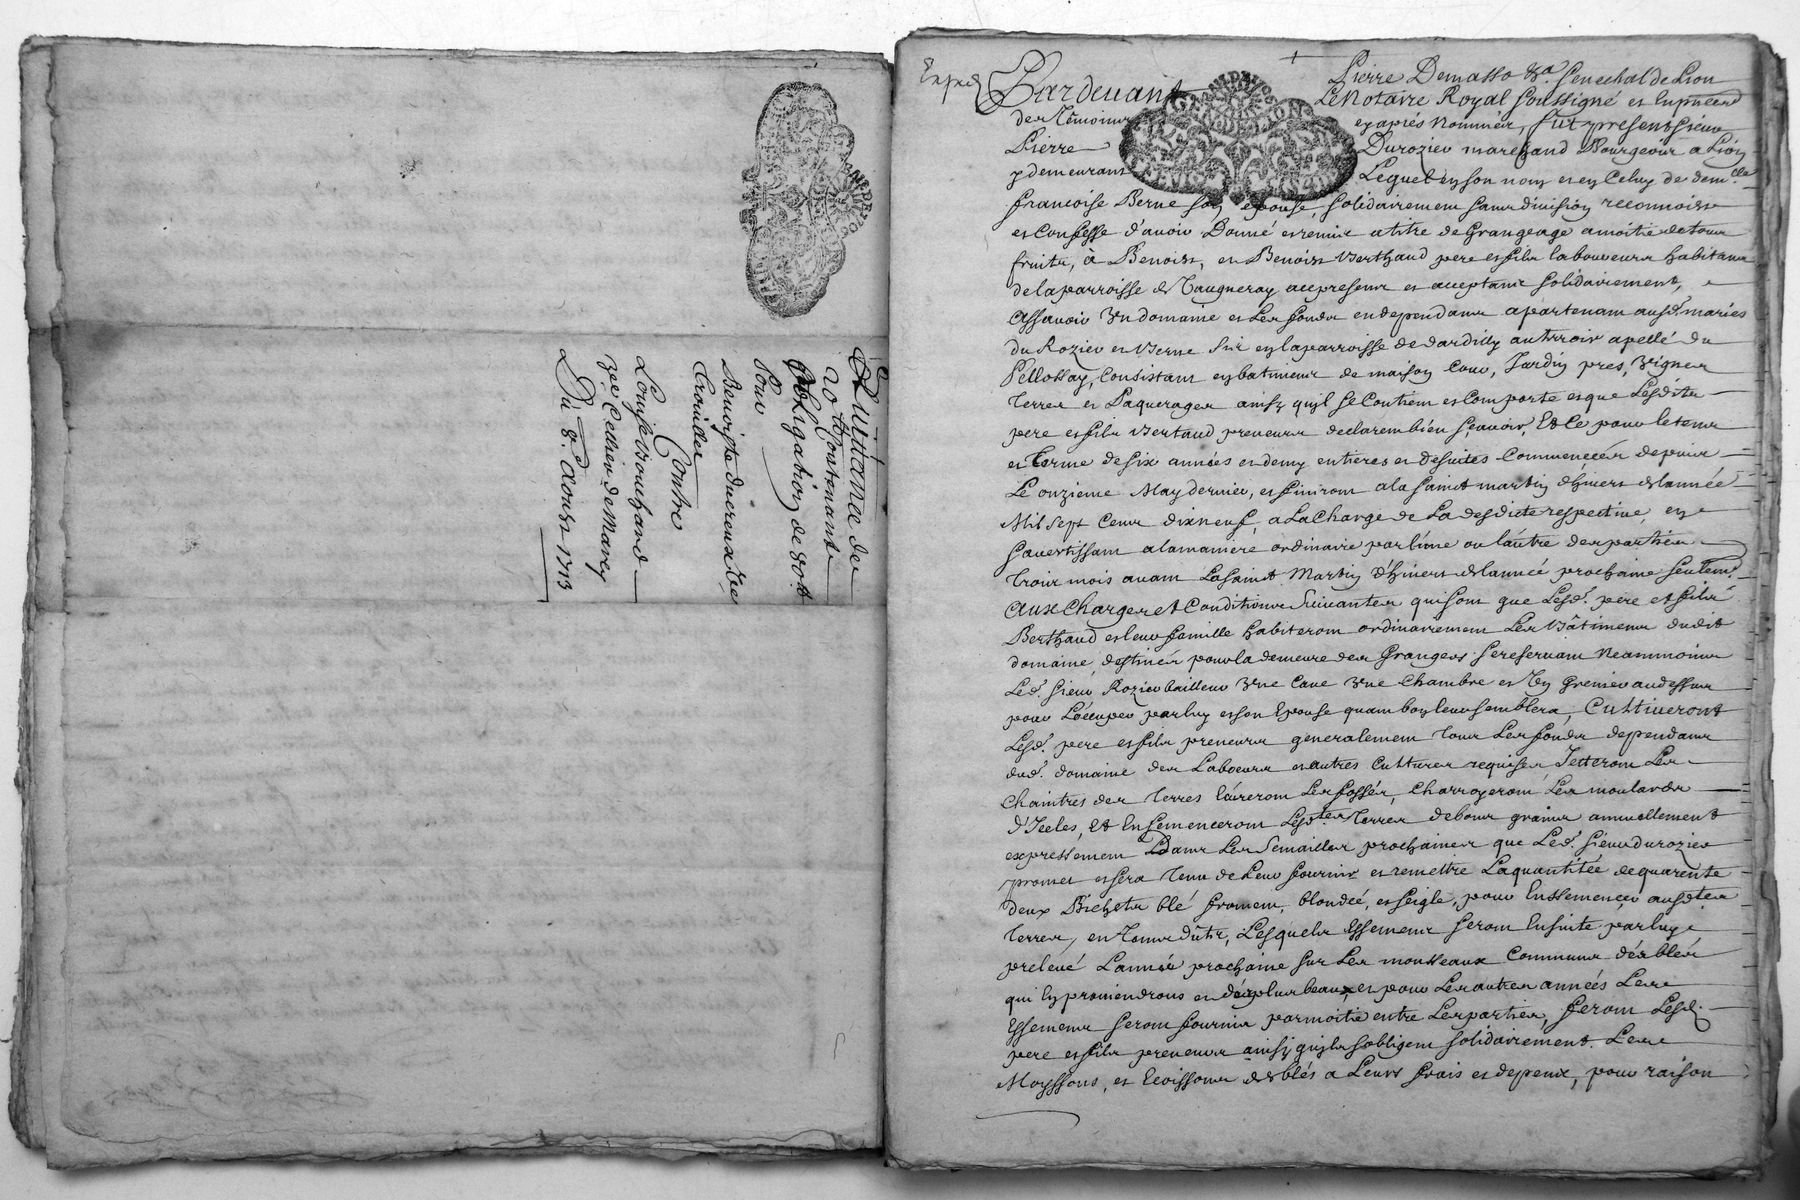 Quittance de
20 ₶ Contenant
Obligation de 80 ₶
Pour
Benoiste Ducreux &c
Croisiller
Contre
Louyse Bouchard
du 8e Aoust 1713
Pardevant Pierre Demasso &a. Senechal de Lion
Le Notaire Royal soussigné et en presence
des Témoins cy aprés nommez, fut present sieur
Pierre Durozier marchand Bourgeois a Lion
y demeurant Lequel en son nom et en Celuy de demlle
francoise Berne son épouse, solidairement sans division reconnoist
et Confesse d'avoir Donné et remis a titre de Grangeage a moitié de tous
fruits, à Benoist, et Benoist Berthaud pere et fils laboureurs habitans
de la parroisse de Vaugneray acy presens et acceptans solidairement,
Assavoir Vn domaine et Les fonds en dependans apartenans ausd. mariés
du Rozier et Berne sis en la parroisse de dardilly au terroir apellé du
Pellossay, Consistant en batimens de maison Cour, Jardin pres, Vignes
Terres et Paquerages ainsy qu'il se Contient et Comporte et que Lesdits
pere et fils Bertaud preneurs declarent bien sçavoir, Et Ce pour le tems
et terme de six années et demy entieres et de suites Commencées depuis
Le onzieme May dernier, et finiront a la saint martin d'hivers de lannée
Mil sept Cens dixneuf, a La Charge de La desdicte respective, en
s'avertissant a la maniere ordinaire par l'une ou l'autre des parties
Trois mois avant La saint Martin d'hivers de lannée prochaine seulemt.
Aux Charges et Conditions suivantes qui sont que Lesd. pere et fils
Berthaud et leur famille habiteront ordinairement Les Bâtimens dudit
domaine, destinés pour la demeure des Grangers se reservant Neanmoins
Led. sieur Rozier bailleur Vne Cave Vne Chambre et Un Grenier au dessus
pour L'occuper par luy et son Epouse quant bon leur semblera, Cultiveront
Lesd. pere et fils preneurs generalement tous Les fonds dependans
dud. domaine des Labours et autres Cultures requises, Jetteront Les
Chaintres des Terres Cureront Les fossés, Charroyeront Les moulards
d'Jcelles, Et Ensemenceront Lesdtes Terres de bons grains annuellement
expressement Dans Les Semailles prochaines que Led. sieur durozier
promet et sera tenu de Leur fournir et remettre La quantitée de quarente
deux Bichets blé froment, blondée, et seigle, pour Enssemencer ausdtes
Terres, en Temps dûtil, Lesquels Essemens seront Ensuite par luy
prelevé L'année prochaine sur Les monseaux Communs dés blés
qui En proviendrons et des plus beaux, et pour Les autres années Les
Essemens seront fournis par moitié entre Les parties, feront Lesd.
pere et fils preneurs ainsy qu'ils s'obligent solidairement Les
Moyssons, et Ecoissons des blés a Leurs frais et depens, pour raison